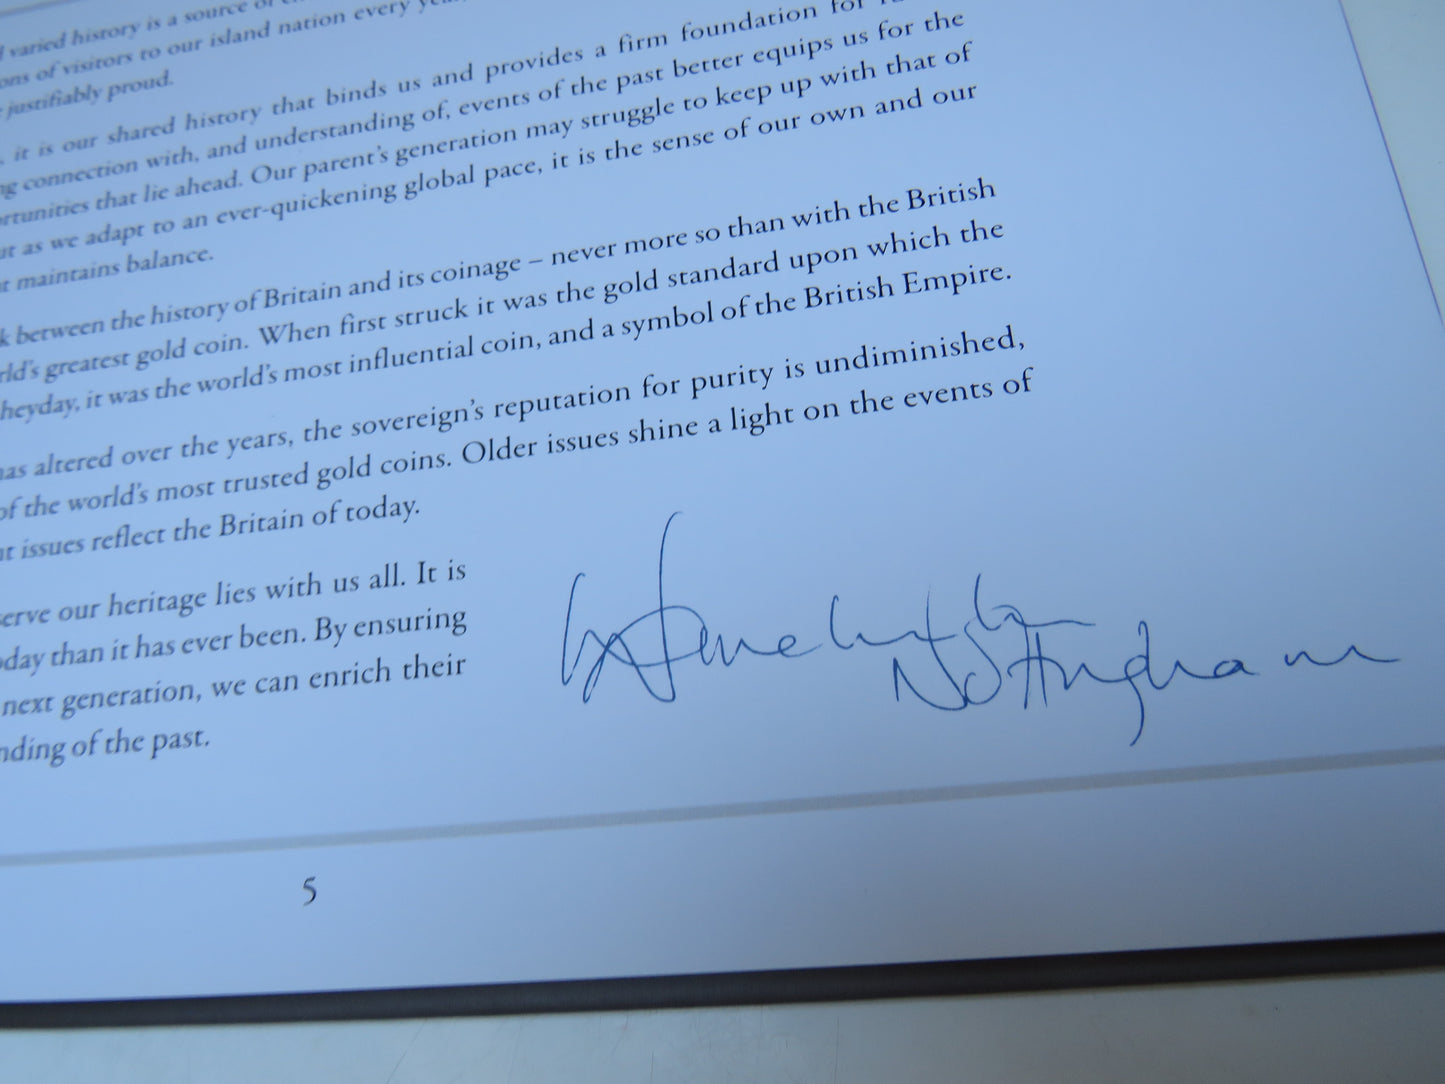 varied history is a source of
ons of visitors to our island nation every
justifiably proud.
it is our shared history that binds us and provides a firm foundation for
ng connection with, and understanding of, events of the past better equips us for the
rtunities that lie ahead. Our parent's generation may struggle to keep up with that of
ut as we adapt to an ever-quickening global pace, it is the sense of our own and our
t maintains balance.
k between the history of Britain and its coinage – never more so than with the British
rld's greatest gold coin. When first struck it was the gold standard upon which the
heyday, it was the world's most influential coin, and a symbol of the British Empire.
has altered over the years, the sovereign's reputation for purity is undiminished,
of the world's most trusted gold coins. Older issues shine a light on the events of
nt issues reflect the Britain of today.
serve our heritage lies with us all. It is
oday than it has ever been. By ensuring
next generation, we can enrich their
nding of the past.
Nottingham
5